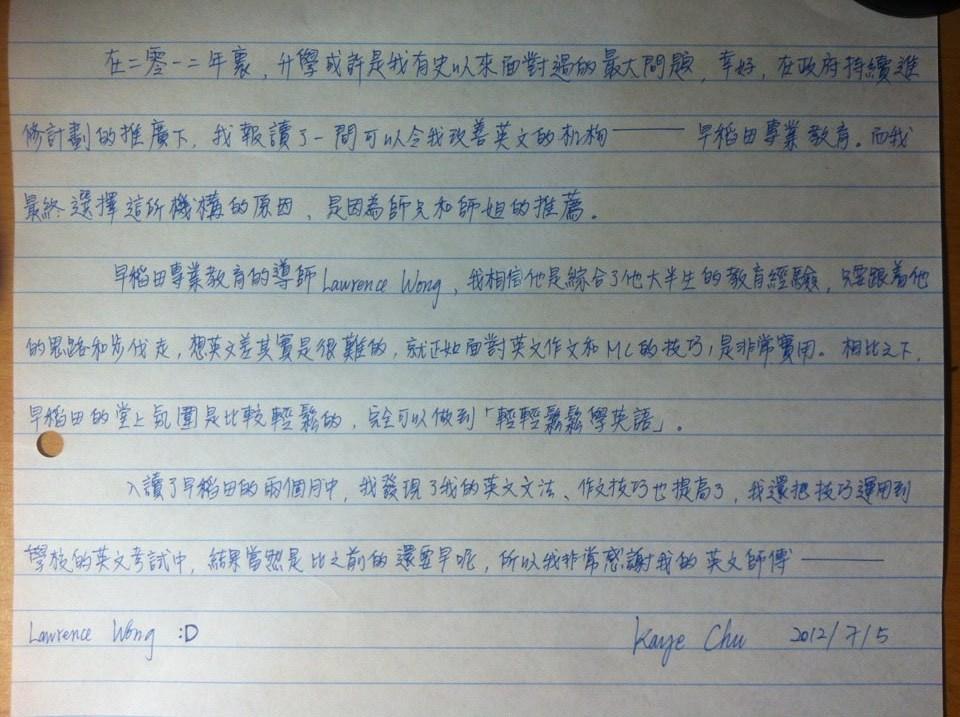 在二零一二年裏，升學或許是我有史以來面對過的最大問題，幸好，在政府持續進
修計劃的推廣下，我報讀了一間可以令我改善英文的机构——早稻田專業教育。而我
最終選擇這所機構的原因，是因為師兄和師姐的推薦。
早稻田專業教育的導師Lawrence Wong，我相信他是綜合了他大半生的教育經驗，只要跟着他
的思路和步伐走，想英文差其實是很難的，就正如面對英文作文和MC的技巧，是非常實用。相比之下，
早稻田的堂上氛圍是比較輕鬆的，完全可以做到「輕輕鬆鬆學英語」。
入讀了早稻田的兩個月中，我發現了我的英文文法、作文技巧也提高了，我還把技巧運用到
學校的英文考試中，結果當然是比之前的還要早呢，所以我非常感謝我的英文師傅——
Lawrence Wong :D Kaye Chu 2012/7/5